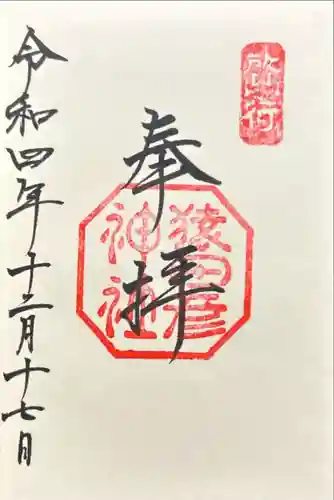 奉拝
猿田彦
神社
令和四年十二月十七月